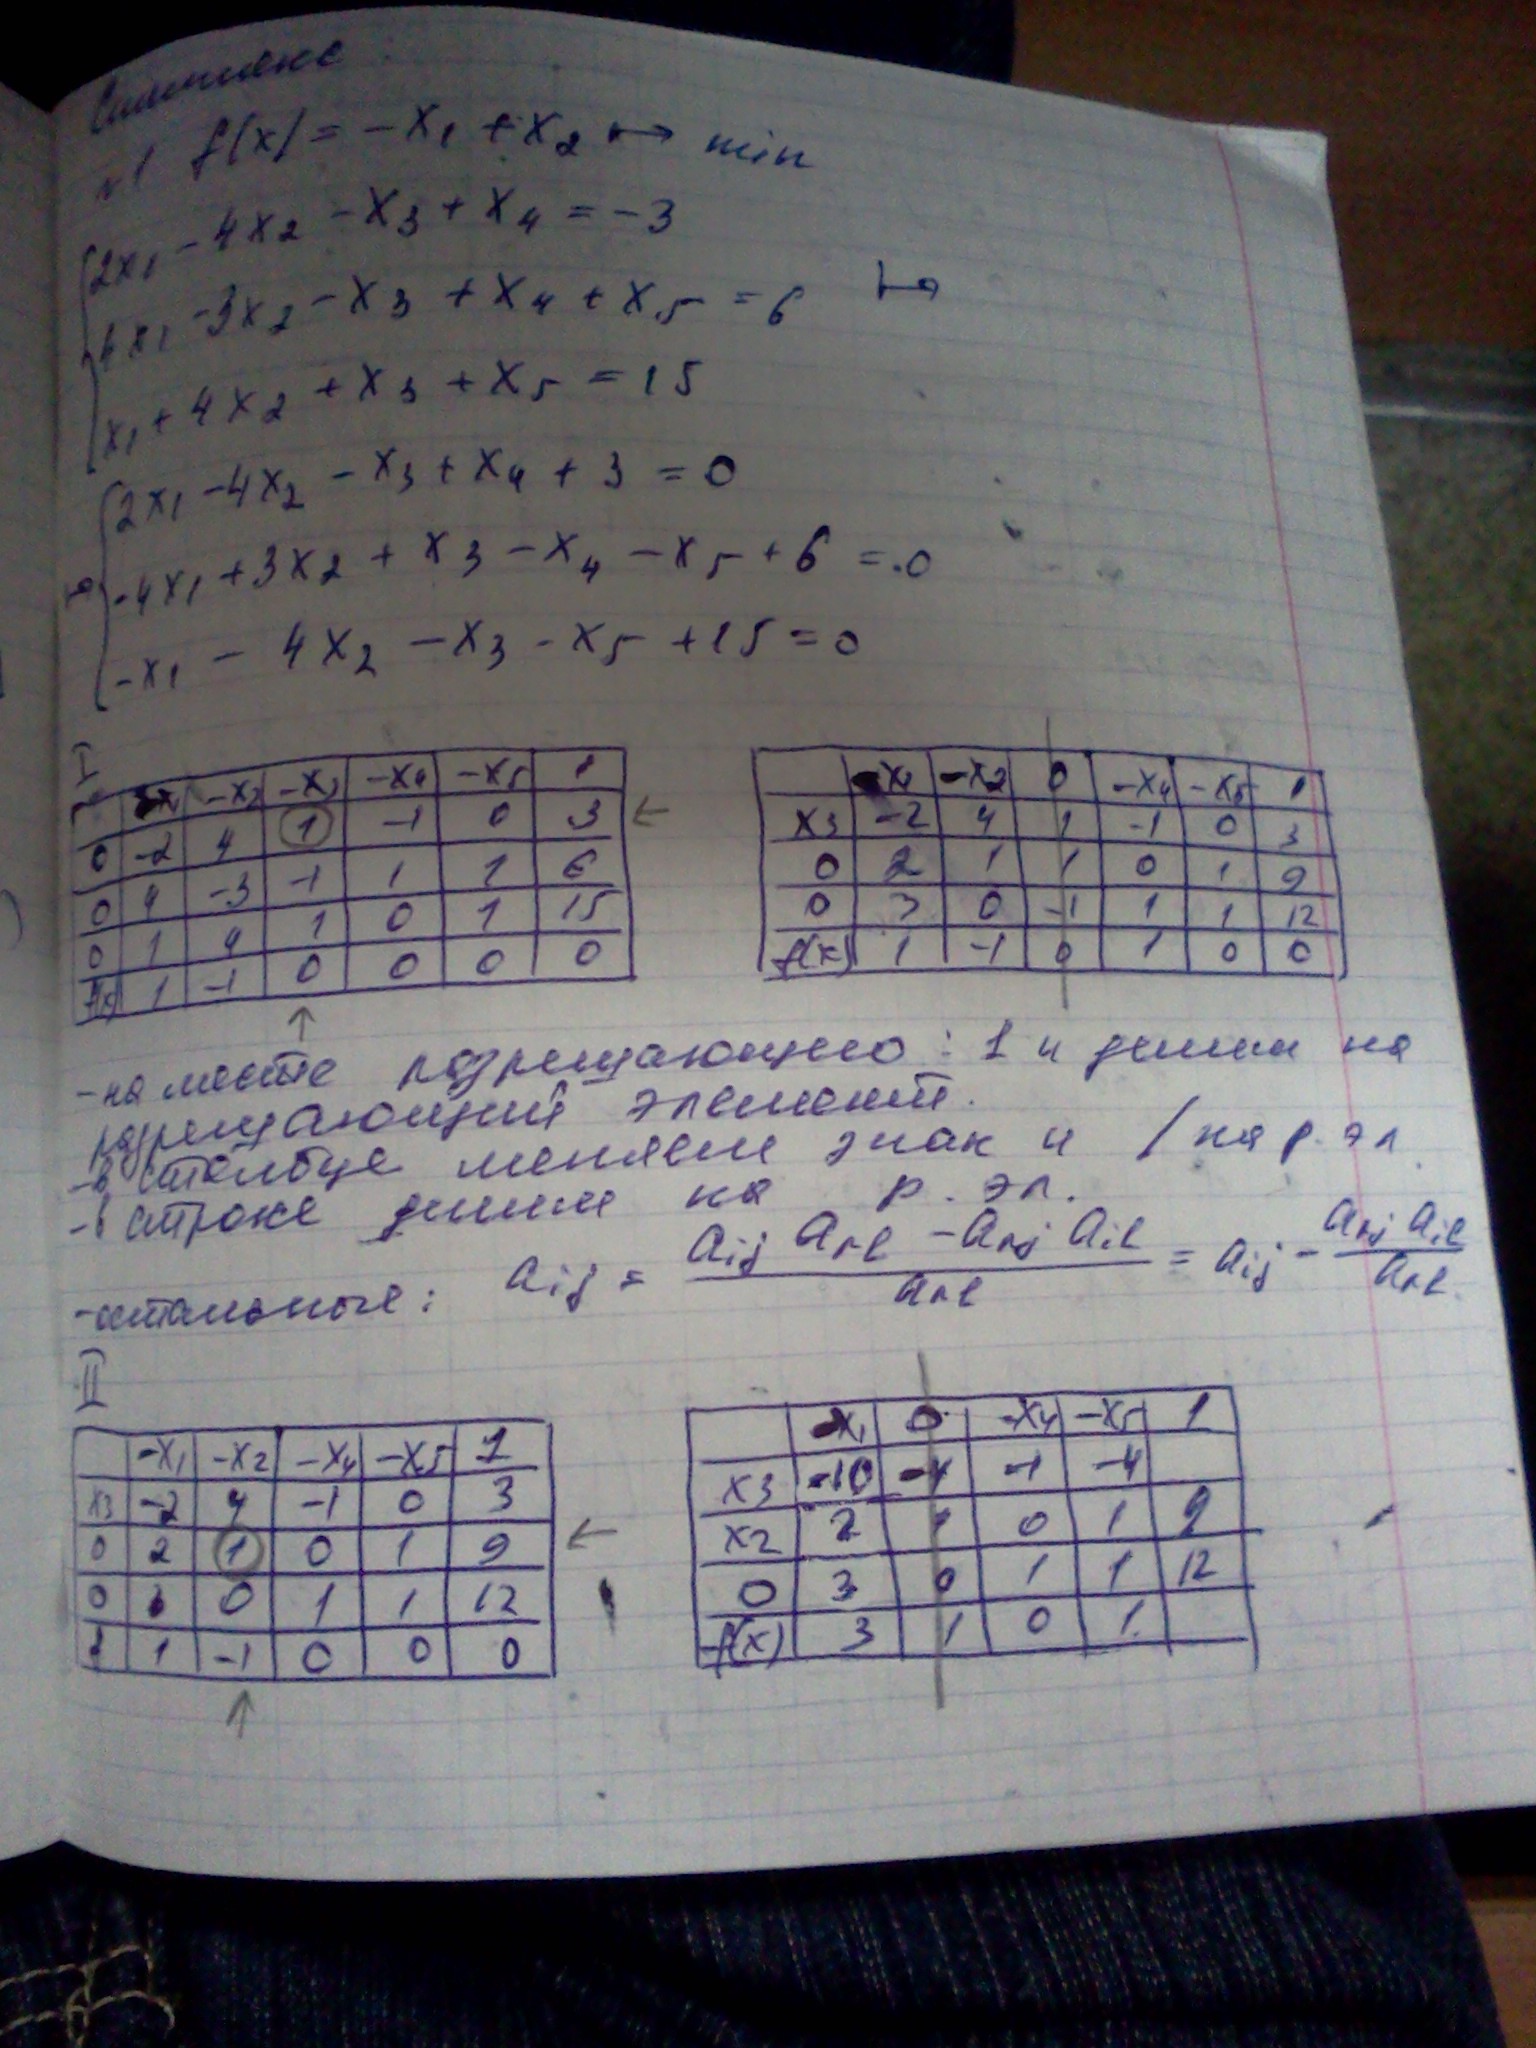 Симплекс :
№1 f(x) = -x1 + x2 ↦ min
2x1 - 4x2 - x3 + x4 = -3
4x1 - 3x2 - x3 + x4 + x5 = 6 ↦
x1 + 4x2 + x3 + x5 = 15
2x1 - 4x2 - x3 + x4 + 3 = 0
↦ -4x1 + 3x2 + x3 - x4 - x5 + 6 = 0
-x1 - 4x2 - x3 - x5 + 15 = 0
I
-x1 -x2 -x3 -x4 -x5 1
0 -2 4 1 -1 0 3 ←
0 4 -3 -1 1 1 6
0 1 4 1 0 1 15
f(x) 1 -1 0 0 0 0
↑
-x1 -x2 0 -x4 -x5 1
x3 -2 4 1 -1 0 3
0 2 1 1 0 1 9
0 3 0 -1 1 1 12
f(x) 1 -1 0 1 0 0
- на месте разрещающего : 1 и делим на
разрещающий элемент.
- в столбце меняем знак и / на р. эл
- в строке делим на р. эл.
- остальные : aij = (aij ark - arj aik) / ark = aij - (arj aik) / ark
II
-x1 -x2 -x4 -x5 1
x3 -2 4 -1 0 3
0 2 1 0 1 9 ←
0 3 0 1 1 12
f 1 -1 0 0 0
↑
-x1 0 -x4 -x5 1
x3 -10 -4 -1 -4
x2 2 1 0 1 9
0 3 0 1 1 12
f(x) 3 1 0 1